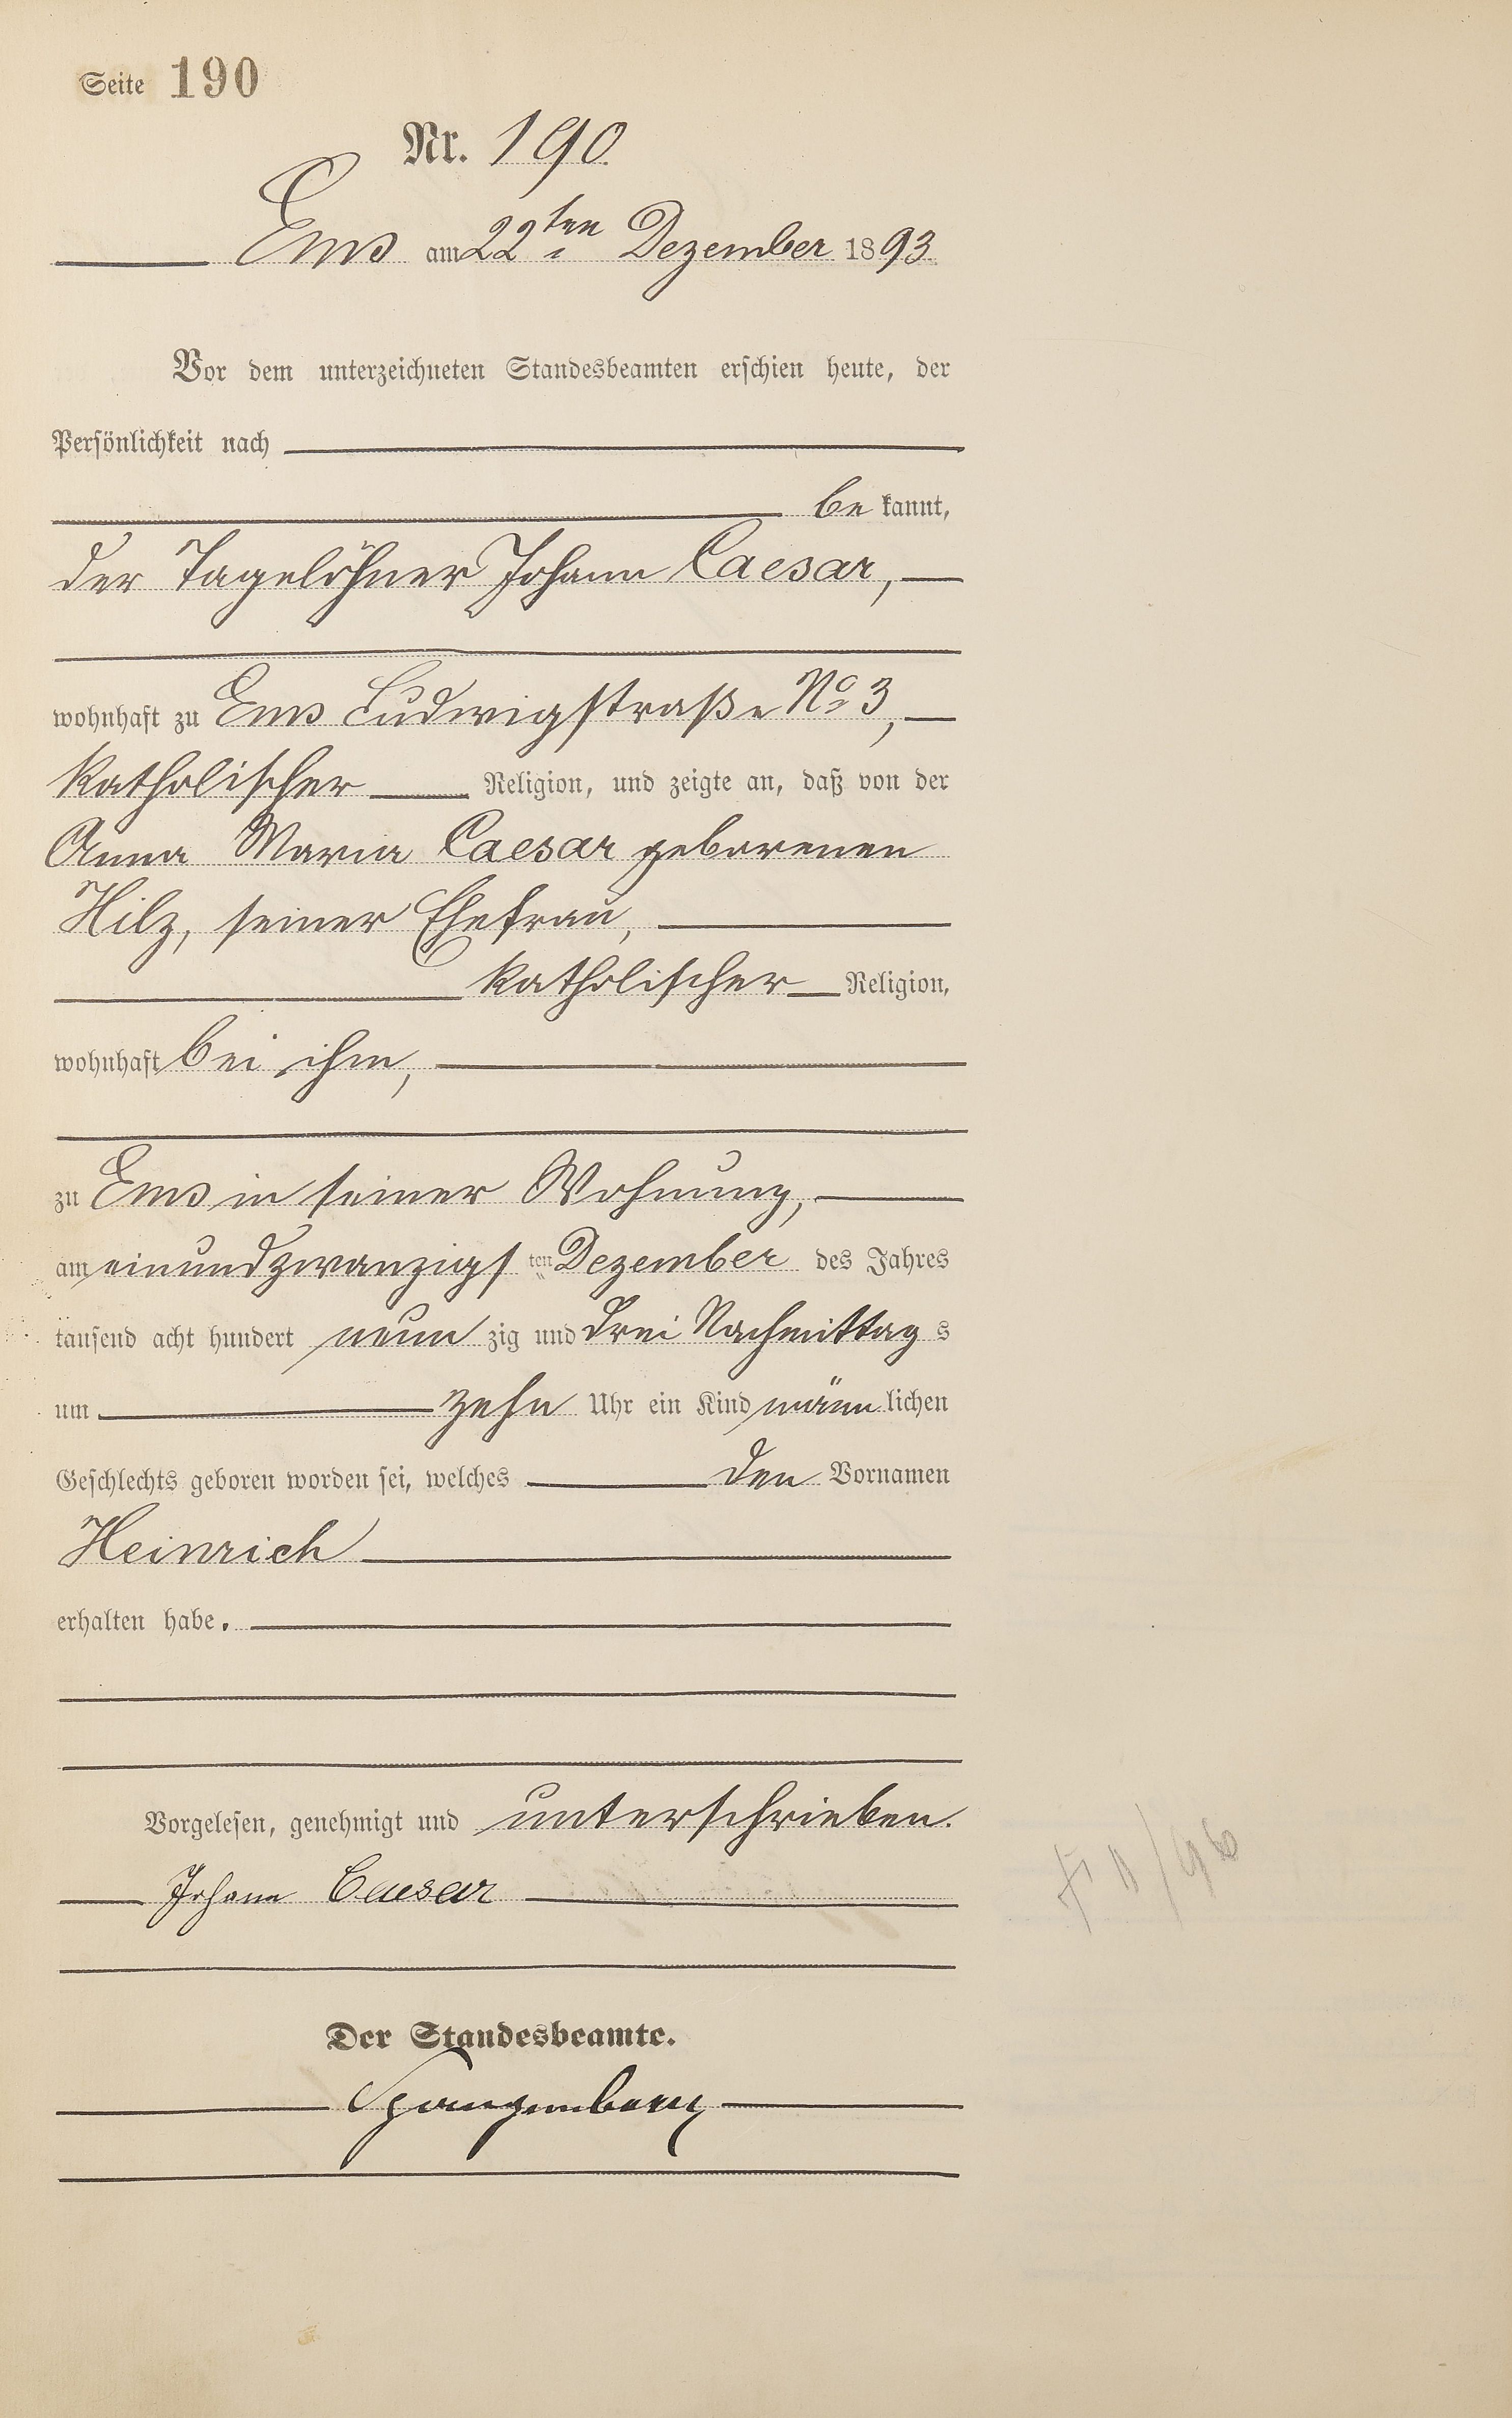 Seite 190
Nr. 190.
Ems am 22ten Dezember 1893.
Vor dem unterzeichneten Standesbeamten erschien heute, der
Persönlichkeit nach
bekannt,
der Tagelöhner Johann Caesar,
wohnhaft zu Ems Ludwigstraße No 3,
katholischer Religion, und zeigte an, daß von der
Anna Maria Caesar geborenen
Hilz, seiner Ehefrau,
katholischer Religion,
wohnhaft bei ihm,
zu Ems in seiner Wohnung,
am einundzwanzigsten Dezember des Jahres
tausend acht hundert neunzig und drei Nachmittags
um zehn Uhr ein Kind männlichen
Geschlechts geboren worden sei, welches den Vornamen
Heinrich
erhalten habe.
Vorgelesen, genehmigt und unterschrieben.
Johann Caesar
Der Standesbeamte.
Spangenberg